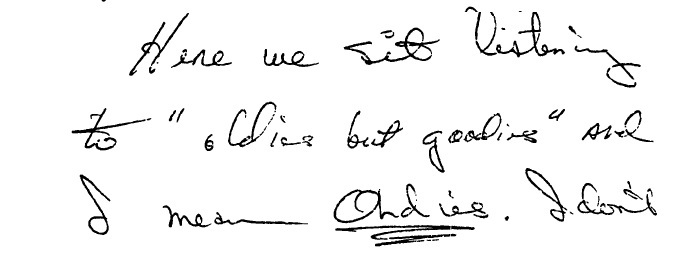 Here we sit listening
to "oldies but goodies" and
I mean Oldies. I don't